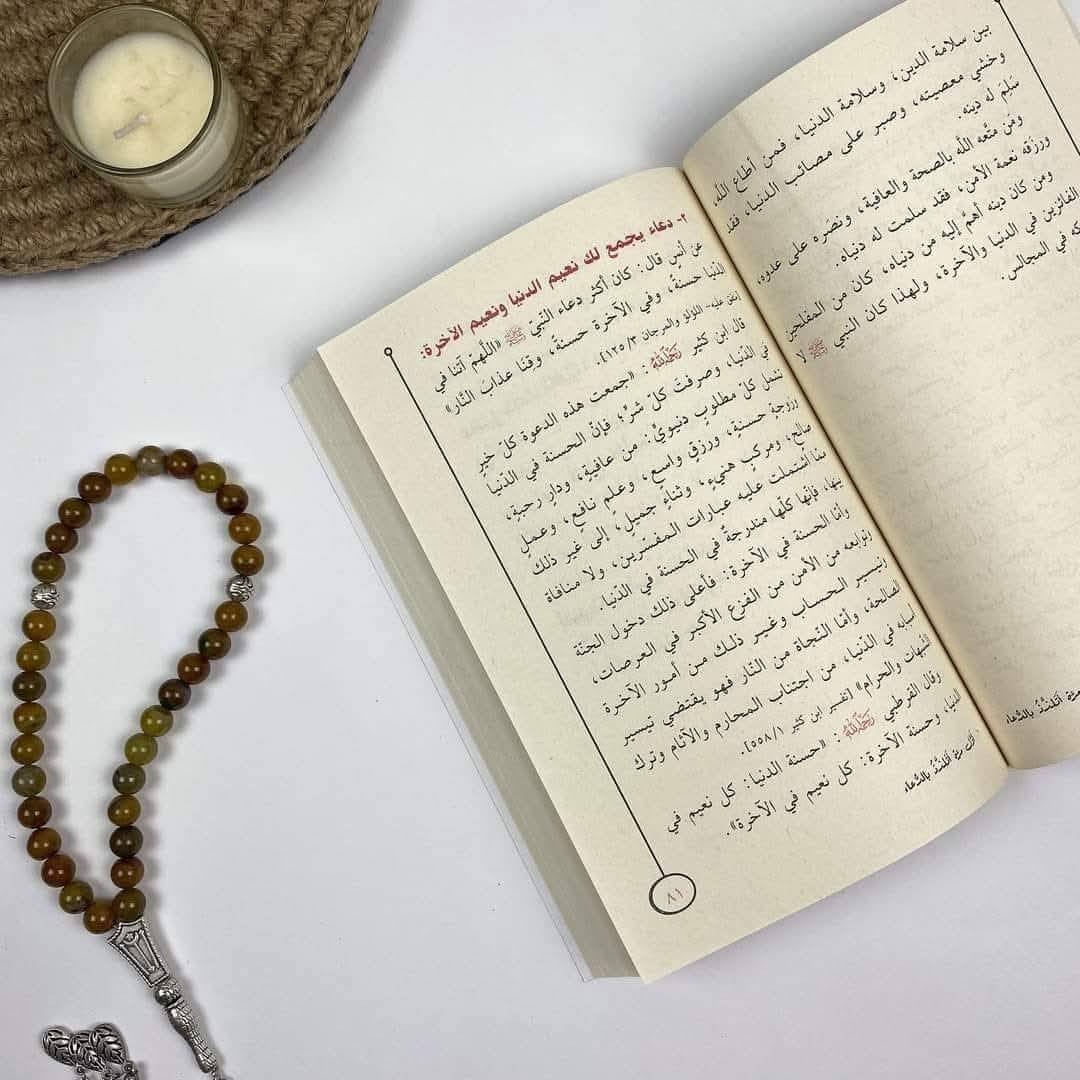 بين سلامة الدين، وسلامة الدنيا، فمن أطاع الله
وخشي معصيته، وصبر على مصائب الدنيا، فقد
سَلِمَ له دينه.
ومَن متَّعه الله بالصحة والعافية، ونصَره على عدوه،
ورزقه نعمة الأمن، فقد سلمت له دنياه.
ومن كان دينه أهمَّ إليه من دنياه، كان من المفلحين
الفائزين في الدنيا والآخرة، ولهذا كان النبي ﷺ لا
في المجالس.
٢- دعاء يجمع لك نعيم الدنيا ونعيم الآخرة:
عن أنسٍ قال: كان أكثر دعاء النّبيّ ﷺ «اللّهمّ آتنا في
الدّنيا حسنةً، وفي الآخرة حسنةً، وقِنا عذابَ النّار»
[متفق عليه- اللؤلؤ والمرجان ١٢٥/٣].
قال ابن كثير رَحِمَهُ اللَّهُ: «جمعت هذه الدعوة كلّ خيرٍ
في الدّنيا، وصرفت كلّ شرٍّ؛ فإنّ الحسنة في الدّنيا
تشمل كلّ مطلوبٍ دنيويٍّ: من عافيةٍ، ودارٍ رحبةٍ،
وزوجةٍ حسنةٍ، ورزقٍ واسعٍ، وعلمٍ نافعٍ، وعملٍ
صالحٍ، ومركبٍ هنيءٍ، وثناءٍ جميلٍ، إلى غير ذلك
ممّا اشتملت عليه عبارات المفسّرين، ولا منافاة
بينها، فإنّها كلّها مندرجةٌ في الحسنة في الدّنيا.
وأمّا الحسنة في الآخرة: فأعلى ذلك دخول الجنّة
وتوابعه من الأمن من الفزع الأكبر في العرصات،
وتيسير الحساب وغير ذلك من أمور الآخرة
الصالحة، وأمّا النّجاة من النّار فهو يقتضي تيسير
أسبابه في الدّنيا، من اجتناب المحارم والآثام وترك
الشّبهات والحرام» [تفسير ابن كثير ٥٥٨/١].
وقال القرطبي رَحِمَهُ اللَّهُ: «حسنة الدنيا: كل نعيم في
الدنيا، وحسنة الآخرة: كل نعيم في الآخرة».
٨١